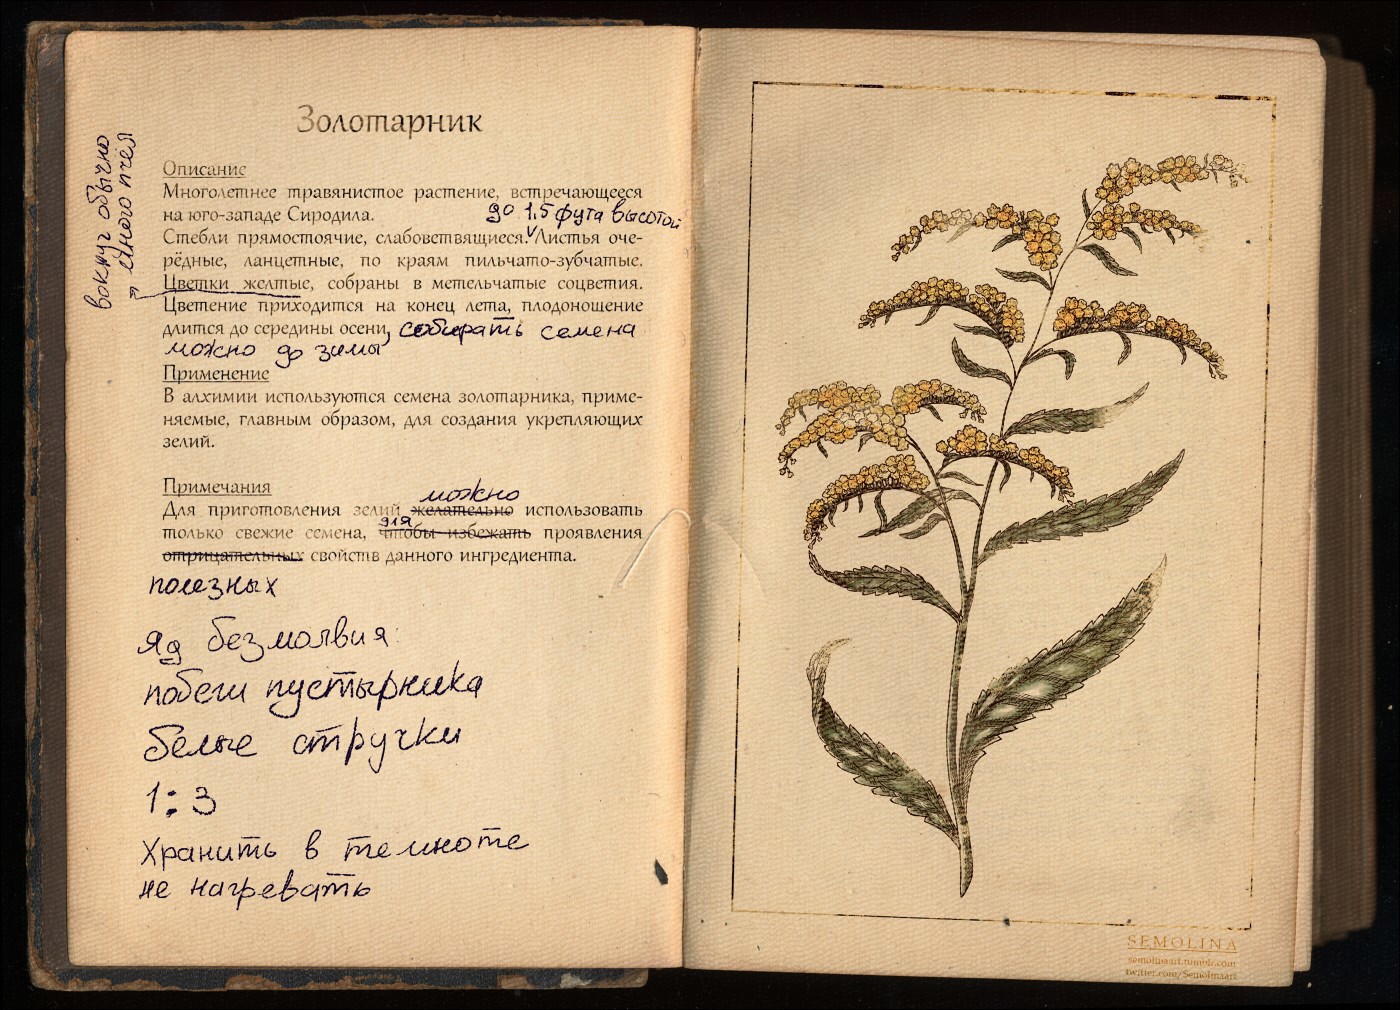 Золотарник
вокруг обычно
много пчел
Описание
Многолетнее травянистое растение, встречающееся
на юго-западе Сиродила.
до 1,5 фута высотой
Стебли прямостоячие, слабоветвящиеся. Листья оче-
рёдные, ланцетные, по краям пильчато-зубчатые.
Цветки желтые, собраны в метельчатые соцветия.
Цветение приходится на конец лета, плодоношение
длится до середины осени, собирать семена
можно до зимы
Применение
В алхимии используются семена золотарника, приме-
няемые, главным образом, для создания укрепляющих
зелий.
Примечания
можно
Для приготовления зелий желательно использовать
для
только свежие семена, чтобы избежать проявления
отрицательных свойств данного ингредиента.
полезных
Яд безмолвия:
побеги пустырника
белые стручки
1:3
Хранить в темноте
не нагревать
SEMOLINA
semolinaart.tumblr.com
twitter.com/Semolinaart